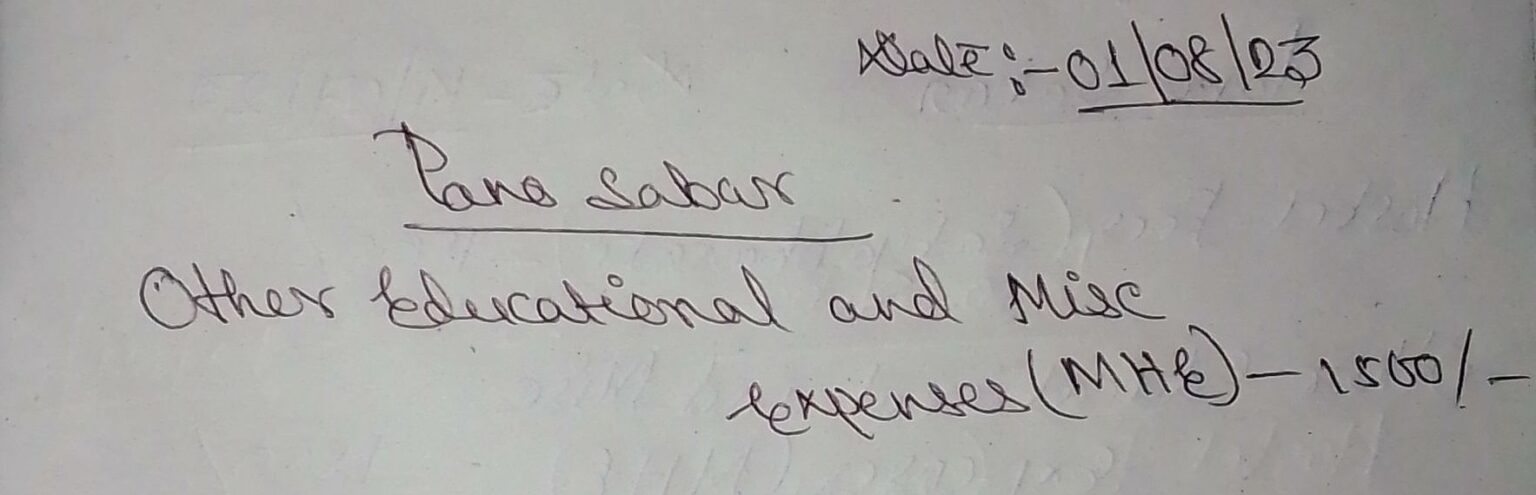 Date :- 01/08/23
Pana Sabar
Other Educational and Misc
Expenses (MHE) – 1500/-